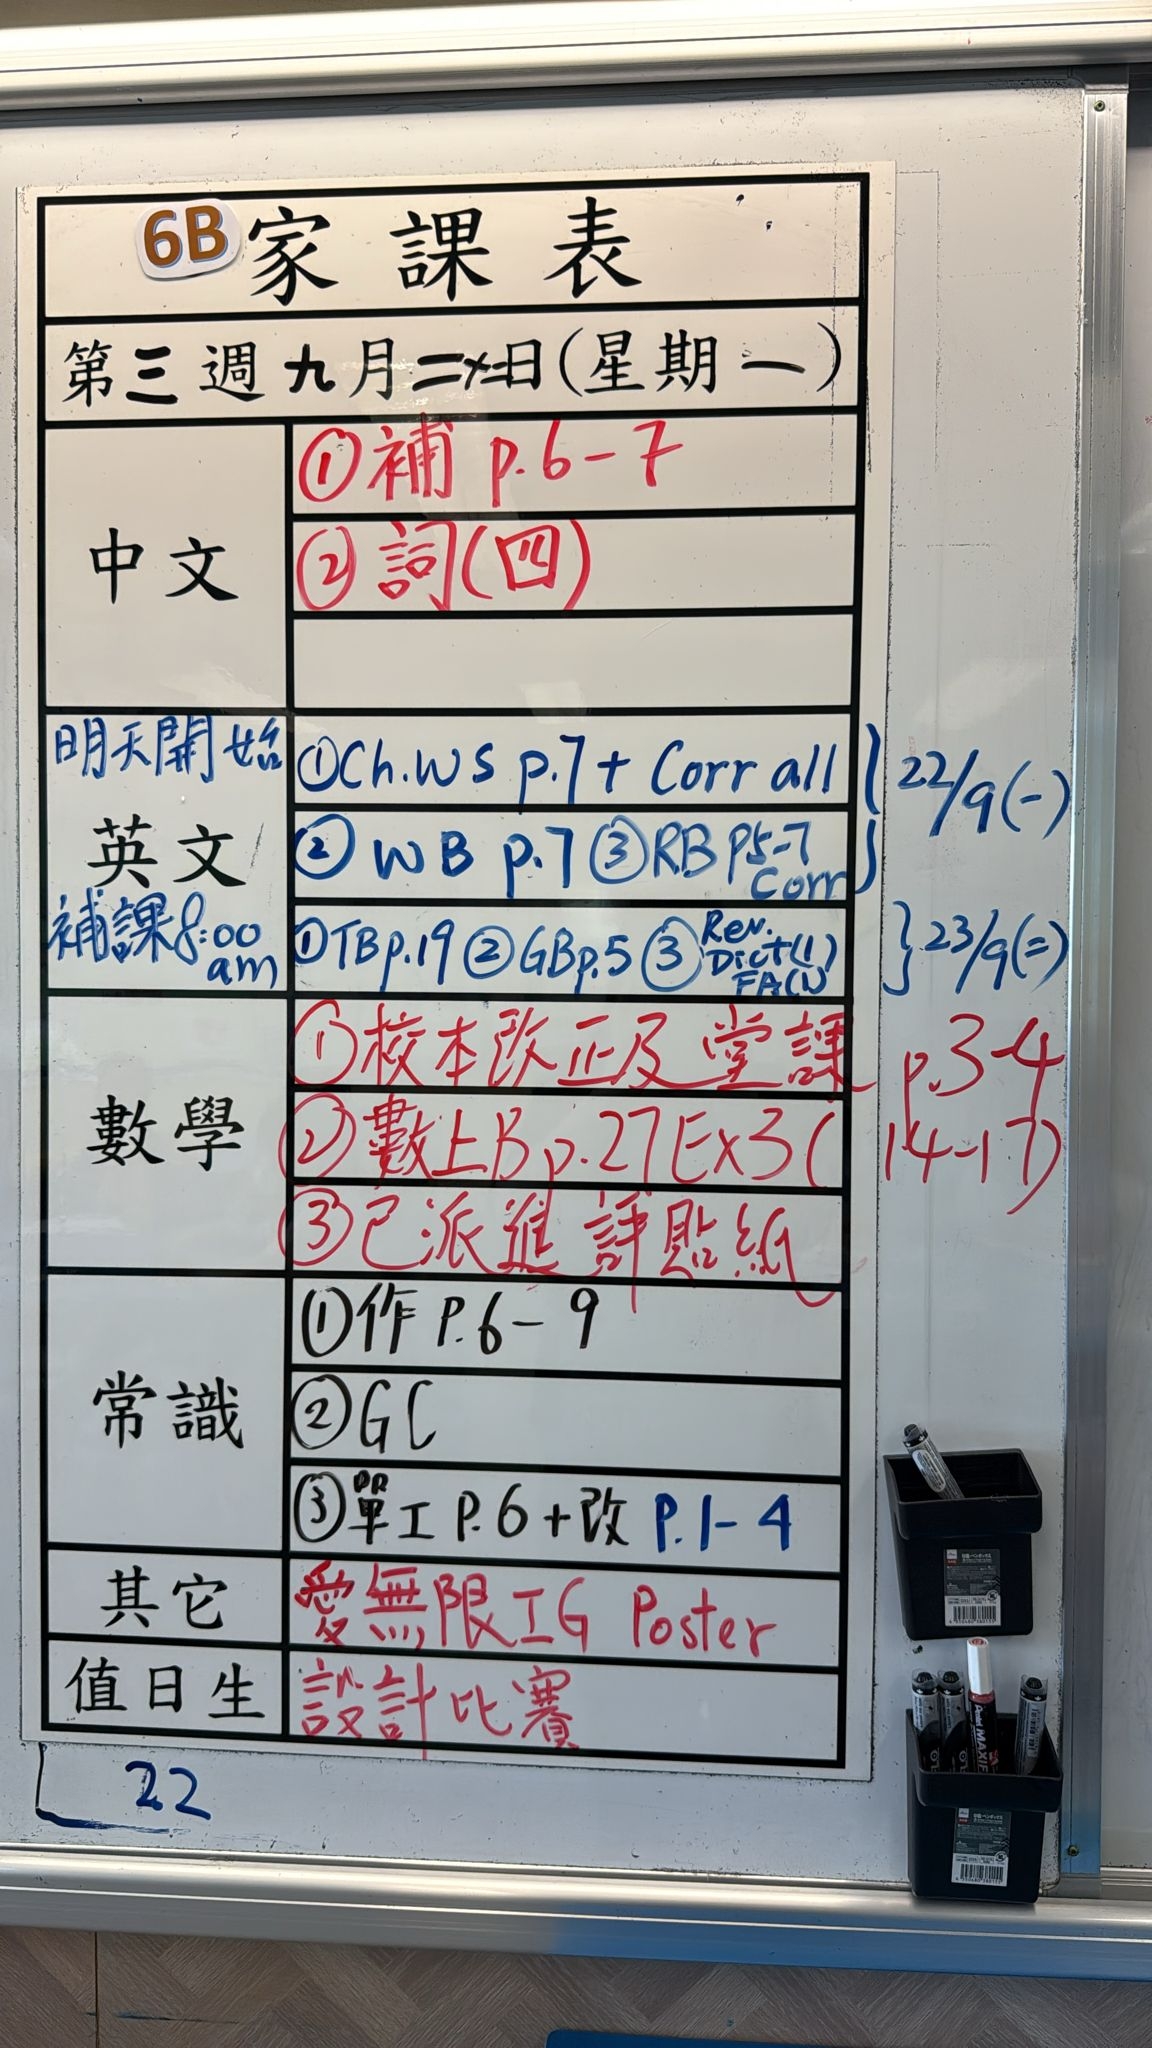 6B 家課表
第三週九月二十二日(星期一)
中文
①補 p.6-7
②詞(四)
明天開始
英文
補課8:00 am
①Ch.WS p.7 + Corr all
②WB p.7 ③RB p5-7 Corr
} 22/9(一)
①TBp.19 ②GBp.5 ③Rev. Dict(1) FA(1)
} 23/9(二)
數學
①校本改正及堂課 p.3-4
②數上B p.27 Ex3(14-17)
③已派進評貼紙
常識
①作 P.6-9
②GC
③單工 P.6+改 P.1-4
其它
愛無限IG Poster
值日生
設計比賽
22